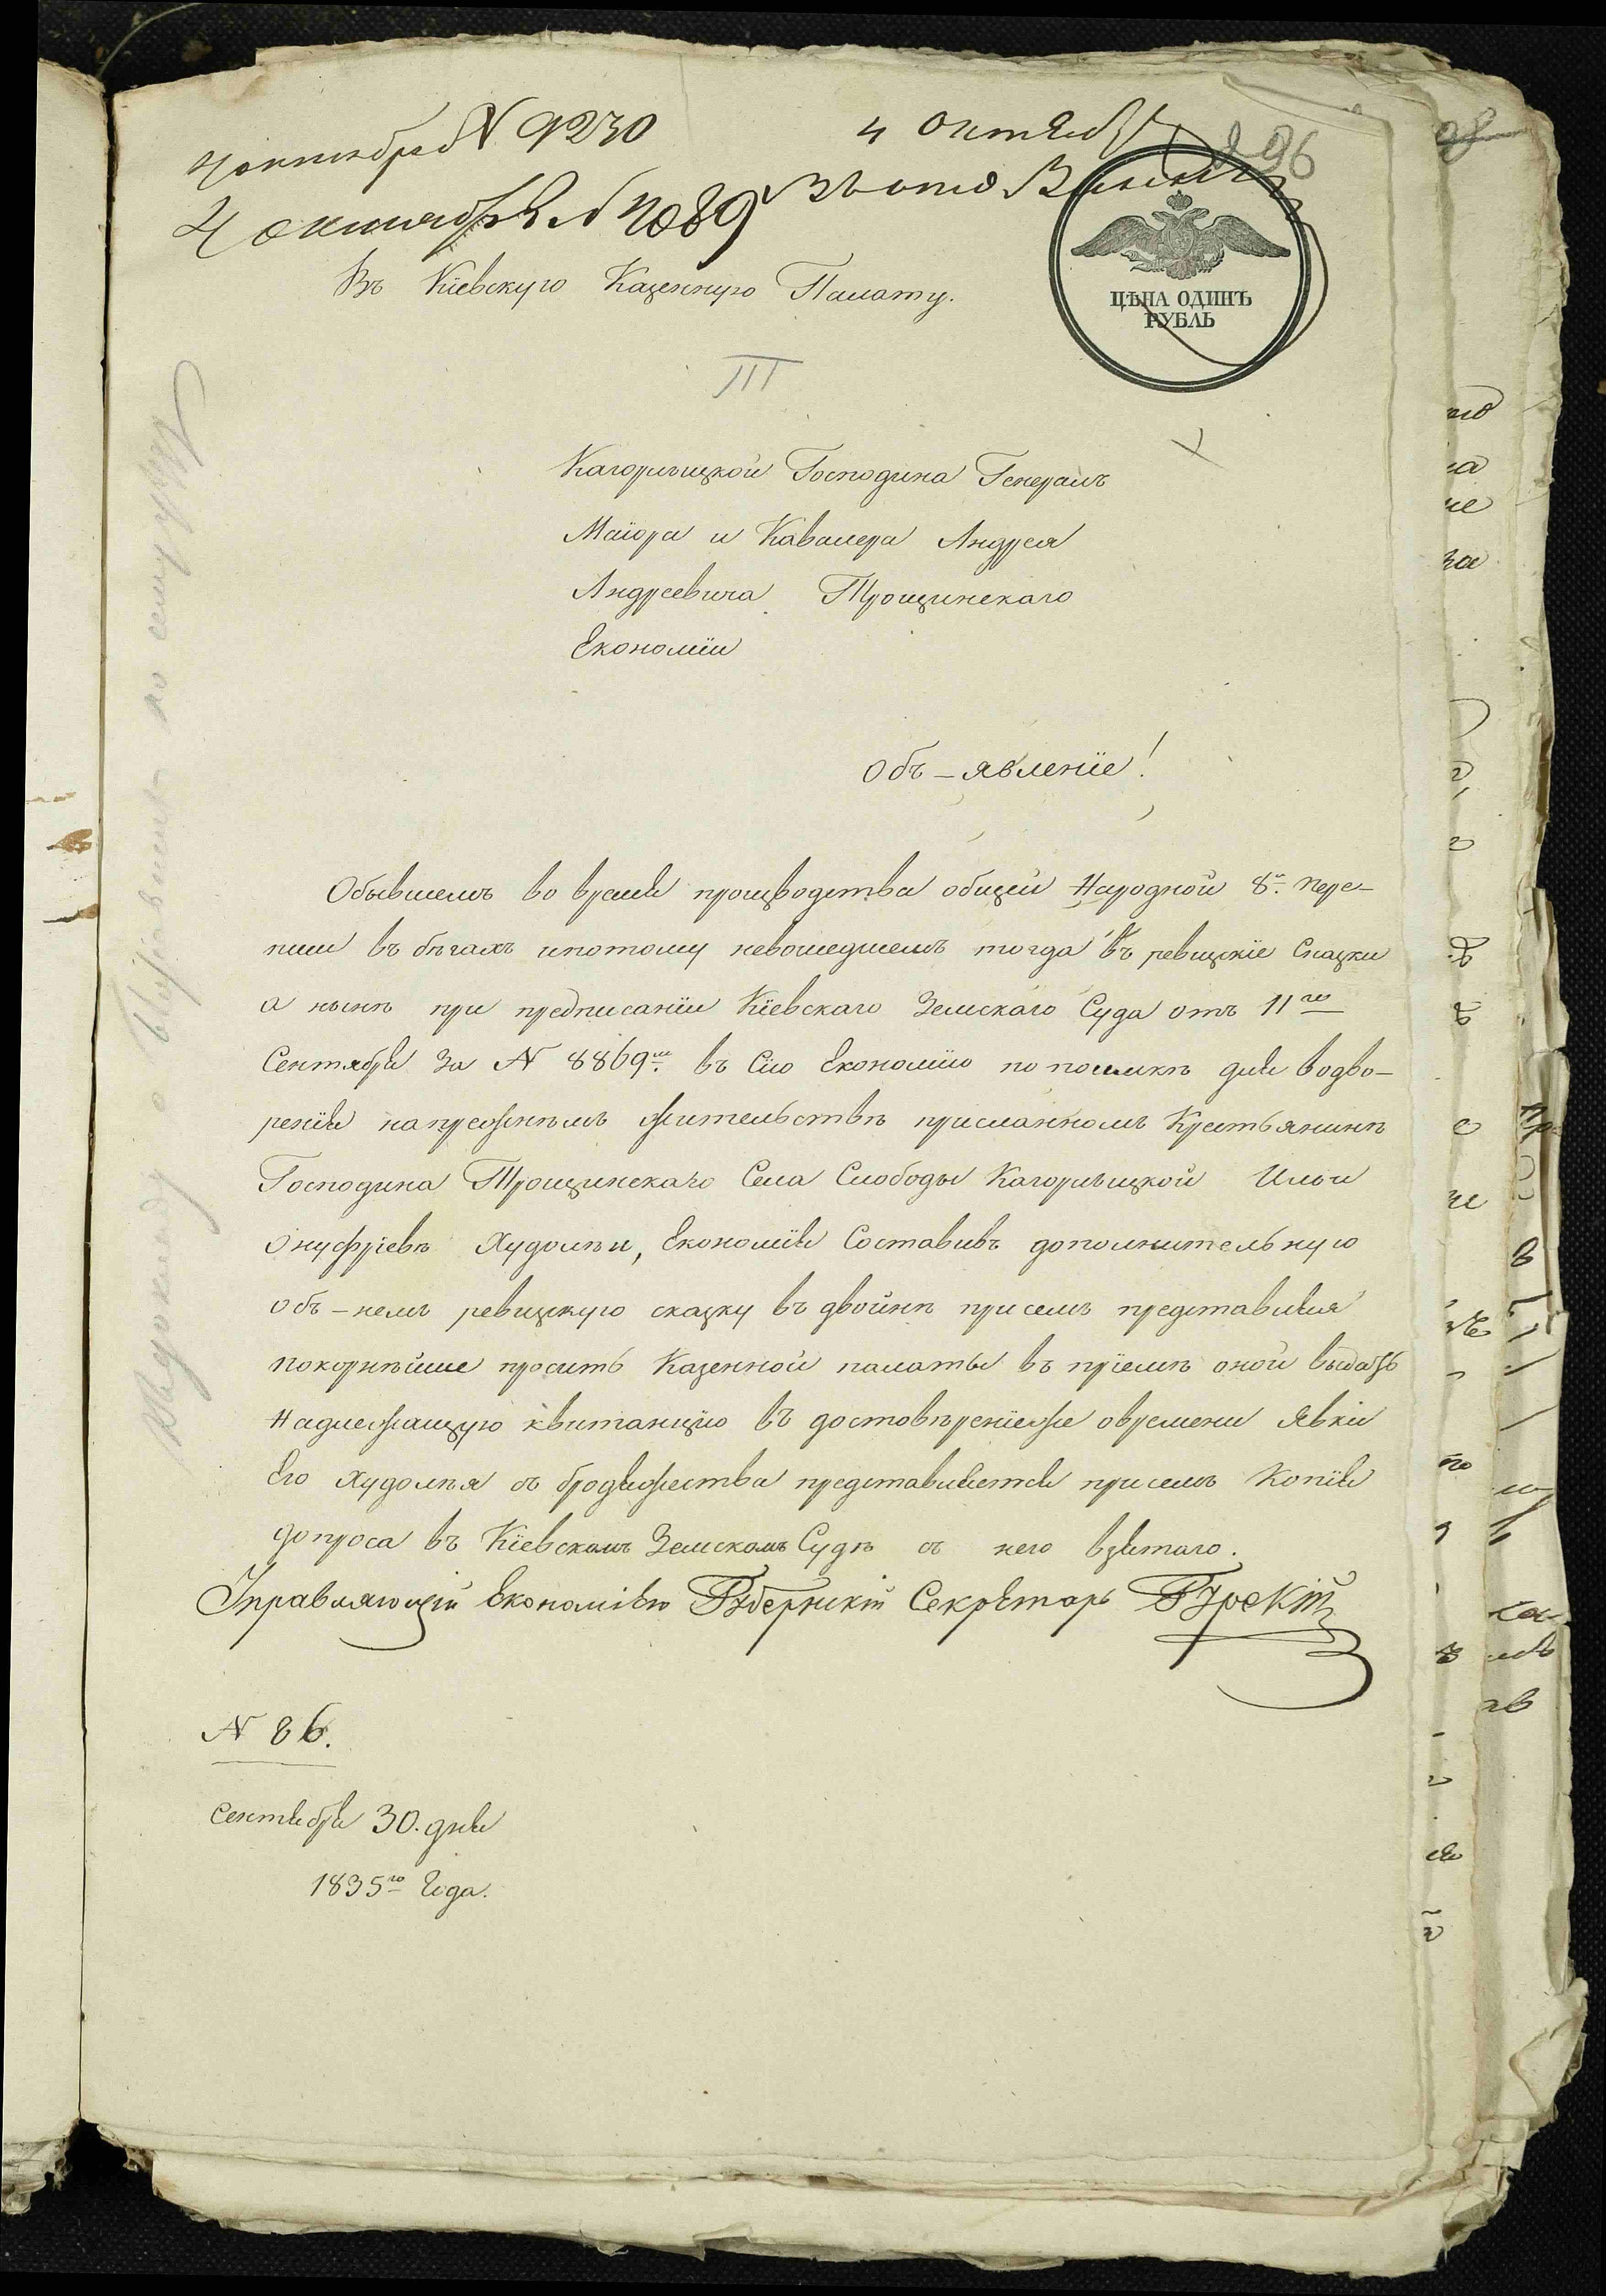 4 октября N 9230
4 октября
4 октября N 7089
296
Въ Кіевскую Казенную Палату.
ЦѢНА ОДИНЪ
РУБЛЬ
III
Кагорлыцкой Господина Генералъ
Маіора и Кавалера Андрея
Андреевича Трощинскаго
Економіи
Объ-явленіе!
Обывшемъ во время производства общей Народной 8й. пере-
писи въ бѣгахъ ипотому невошедшемъ тогда въ ревизкіе Сказки
а нынѣ при предписаніи Кіевскаго Земскаго Суда отъ 11го
Сентября За N 8869м. въ Сію Економію по посылкѣ для водво-
ренія напрежнѣмъ жительствѣ присланномъ Крестьянинѣ
Господина Трощинскаго Села Слободы Кагорлыцкой Ильи
Онуфріевѣ Худолѣи, Економія Составивъ дополнительную
объ-немъ ревизкую сказку въ двойнѣ присемъ представляя
покорнѣйше проситъ Казенной палаты въ пріемѣ оной выдать
Надлежащую квитанцію въ достовѣреніеже овремени Явки
Его Худолѣя съ бродяжества представляется присемъ Копія
допроса въ Кіевскомъ Земскомъ Судѣ съ него взятаго.
Управляющій Економіею Губернскій Секретарь Гурскій
N 86.
Сентября 30. дня
1835го Года.